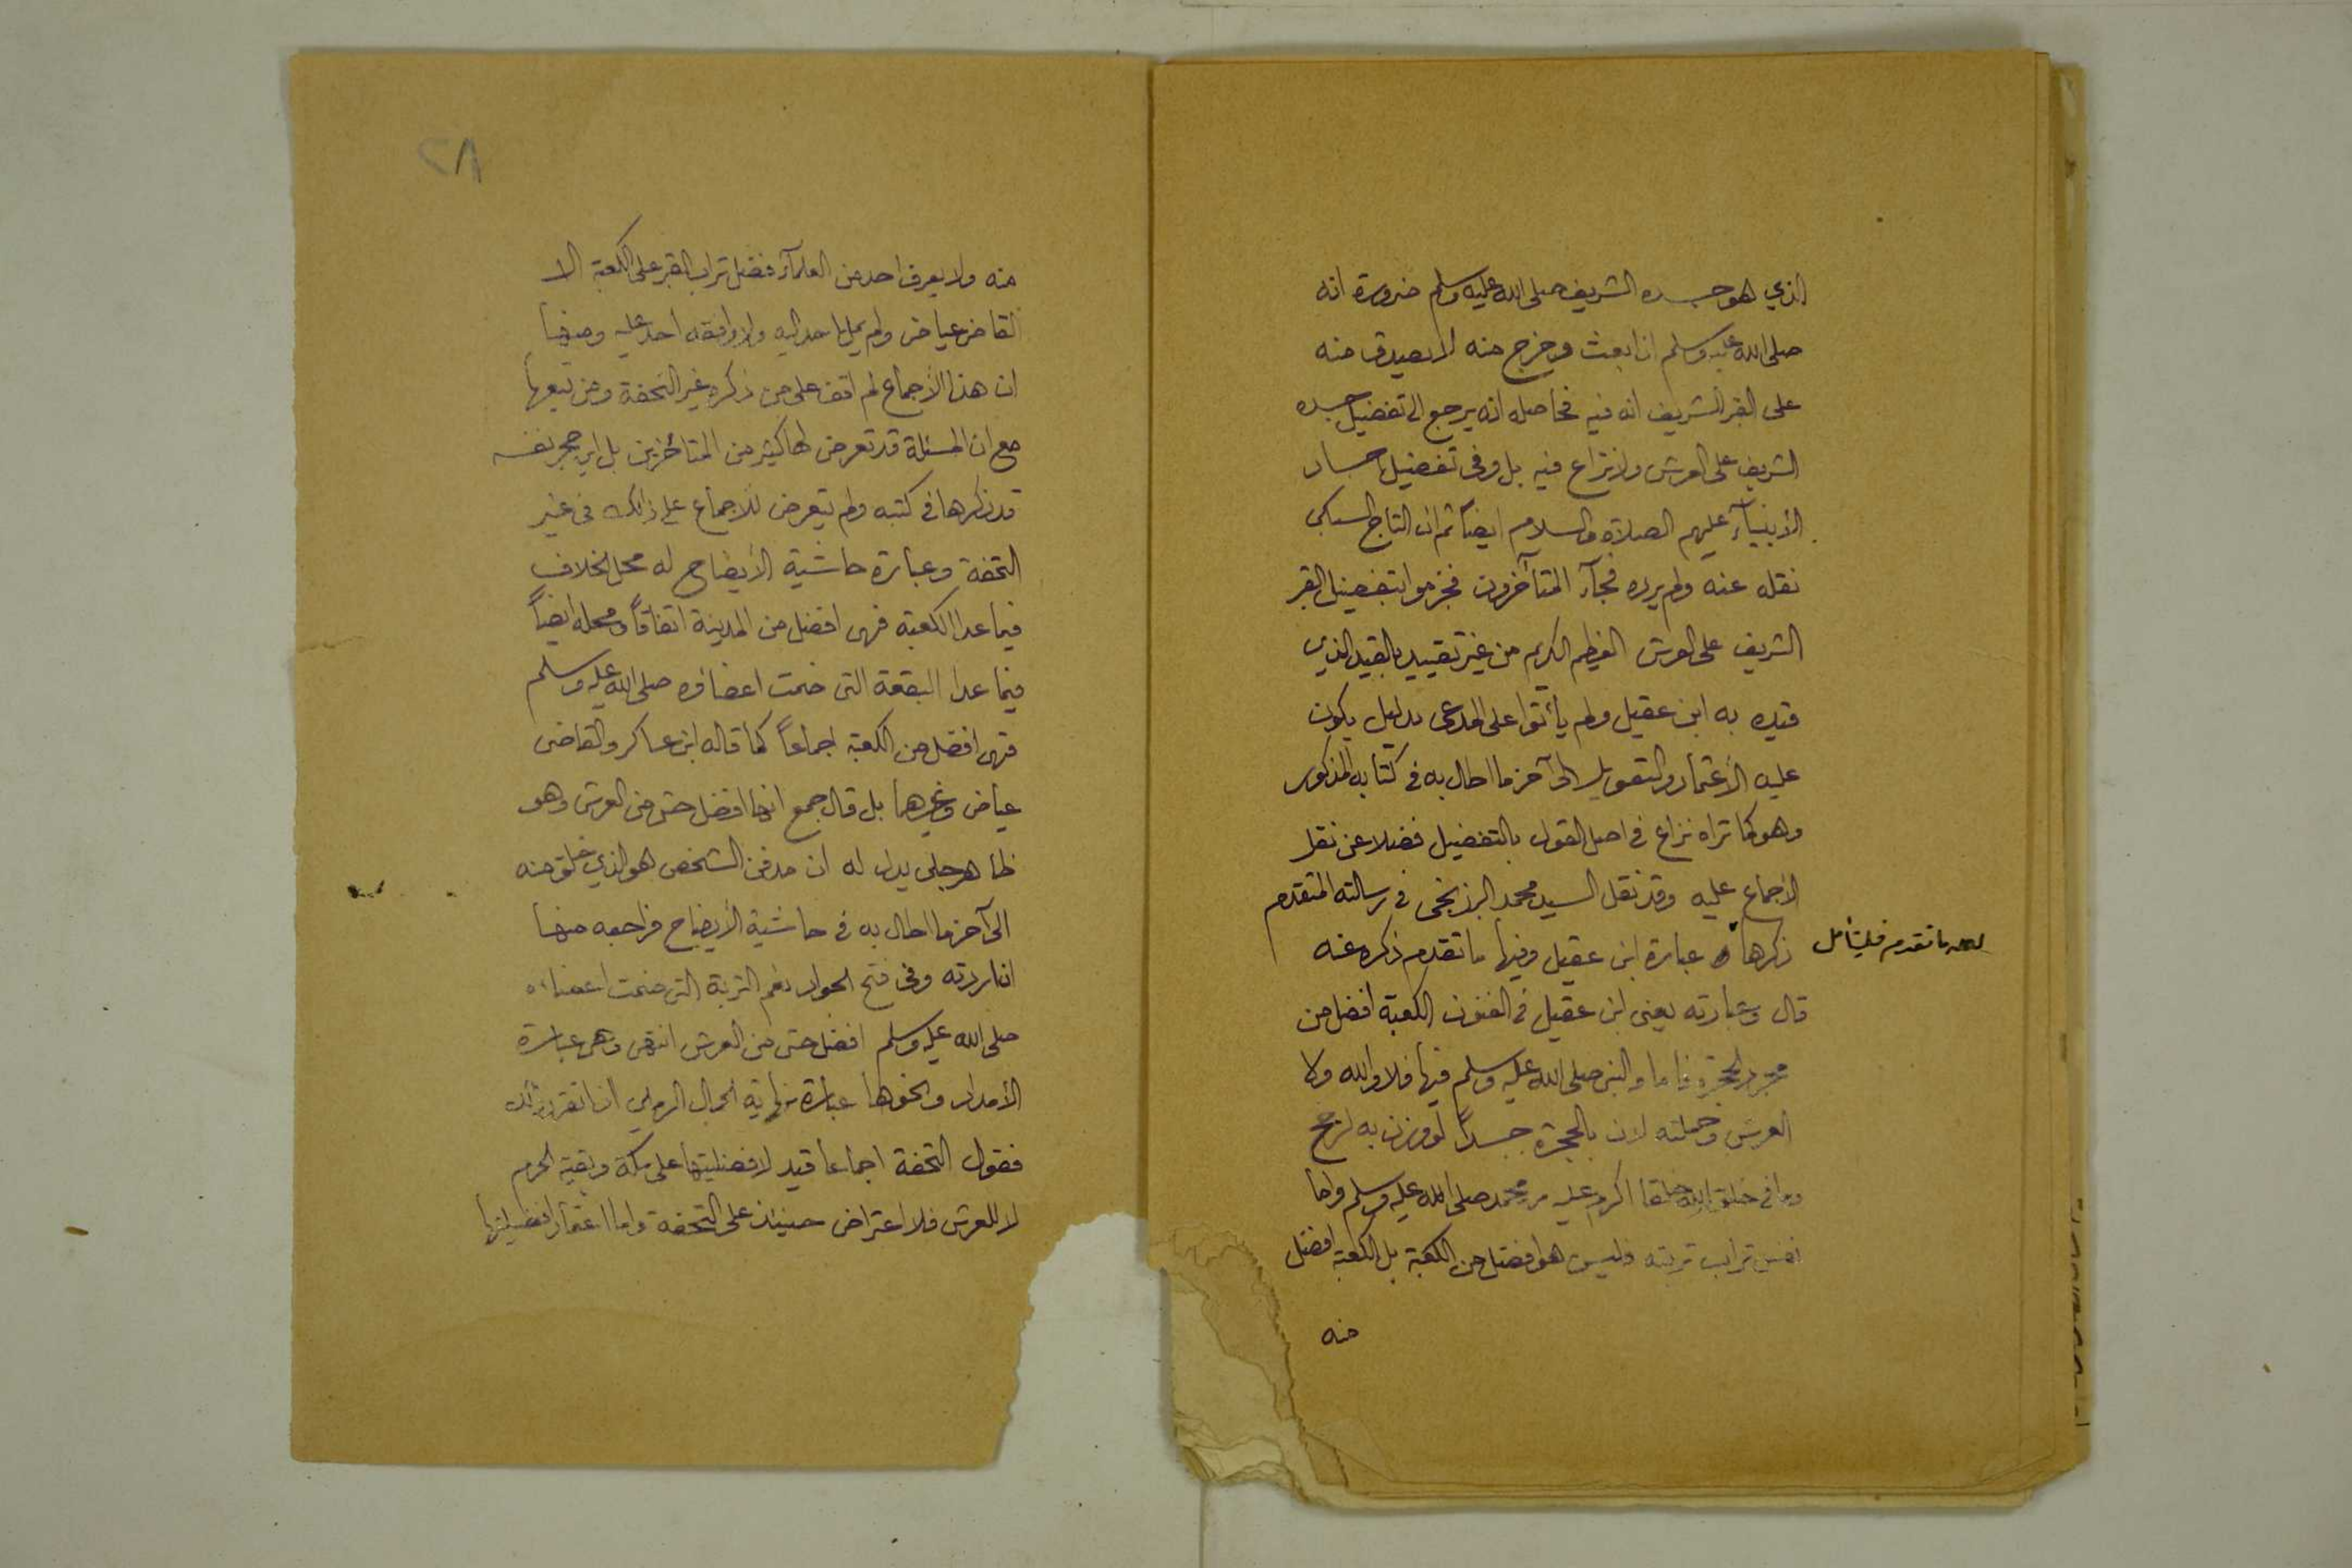 الذي هو جسده الشريف صلى الله عليه وسلم ضرورة انه
صلى الله عليه وسلم اذا بعث وخرج منه لا يصدق منه
على القبر الشريف انه فيه فحاصله انه يرجع الى تفضيل جسده
الشريف على العرش ولا نزاع فيه بل وفى تفضيل اجساد
الأنبيآء عليهم الصلاة والسلام ايضاً ثم ان التاج السبكى
نقله عنه ولم يرده فجآء المتآخرون فجزموا بتفضيل القبر
الشريف على العرش العظيم الكريم من غير تقييد بالقيد الذي
قيده به ابن عقيل ولم يأتوا على المدعى بدليل يكون
عليه الأعتماد والتعويل الى آخر ما اطال به فى كتابه المذكور
وهو كما تراه نزاع فى اصل القول بالتفضيل فضلا عن نقل
الاجماع عليه وقد نقل السيد محمد البرزنجى فى رسالته المتقدم
ذكرها عبارة ابن عقيل وفيها ما تقدم ذكره عنه
ما تقدم فليتأمل
قال وعبارته يعنى ابن عقيل فى الفنون الكعبة افضل من
مجرد الحجرة فاما والنبى صلى الله عليه وسلم فيها فلا والله ولا
العرش وحملته لان بالحجرة جسداً لو وزن به لرجح
وما فى خلق الله خلقا اكرم عليه من محمد صلى الله عليه وسلم واما
نفس تراب تربته فليس هو افضل من الكعبة بل الكعبة افضل
منه
٢٨
منه ولا يعرف احد من العلمآء فضل تراب القبر على الكعبة الا
القاضى عياض ولم يمل احد اليه ولا وافقه احد عليه ومنها
ان هذا الأجماع لم اقف على من ذكره غير التحفة ومن تبعها
مع ان المسئلة قد تعرض لها كثير من المتأخرين بل ابن حجر نفسه
قد ذكرها فى كتبه ولم يتعرض للاجماع على ذلك فى غير
التحفة وعبارة حاشية الأيضاح له محل الخلاف
فيما عدا الكعبة فهى افضل من المدينة اتفاقاً ومحله ايضاً
فيما عدا البقعة التى ضمت اعضاؤه صلى الله عليه وسلم
فهى افضل من الكعبة اجماعاً كما قاله ابن عساكر والقاضى
عياض وغيرهما بل قال جمع انها افضل حتى من العرش وهو
ظاهر جلى يدل له ان مدفن الشخص هو الذي خلق منه
الى آخر ما اطال به فى حاشية الأيضاح فراجعه منها
ان اردته وفى فتح الجواد نعم التربة التى ضمت اعضاءه
صلى الله عليه وسلم افضل حتى من العرش انتهى وهى عبارة
الأمداد ونحوها عبارة نهاية الجمال الرملي اذا تقرر ذلك
فقول التحفة اجماعا قيد لافضليتها على مكة وبقية الحرم
لا للعرش فلا اعتراض حينئذ على التحفة واما اعتماد افضليتها